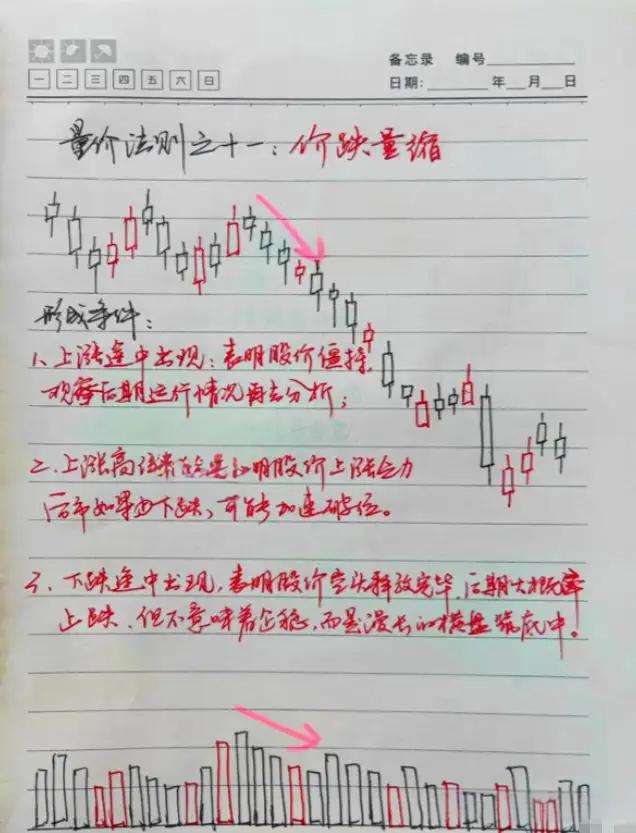 备忘录 编号
一 二 三 四 五 六 日
日期: 年 月 日
量价法则之十一：价跌量缩
形成条件：
1、上涨途中出现：表明股价僵持，
观察后期运行情况再去分析；
2、上涨高位 明股价上涨乏力
后市如果 下跌，可能加速破位。
3、下跌途中出现，表明股价空头释放完毕，后期大概率
止跌、但不意味着企稳，而是漫长的横盘筑底中！